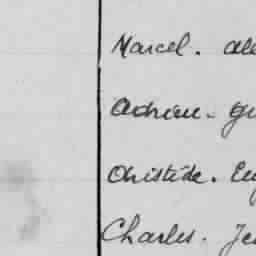 Marcel. ale
Adrien. gu
Aristide. Eug
Charles. Je